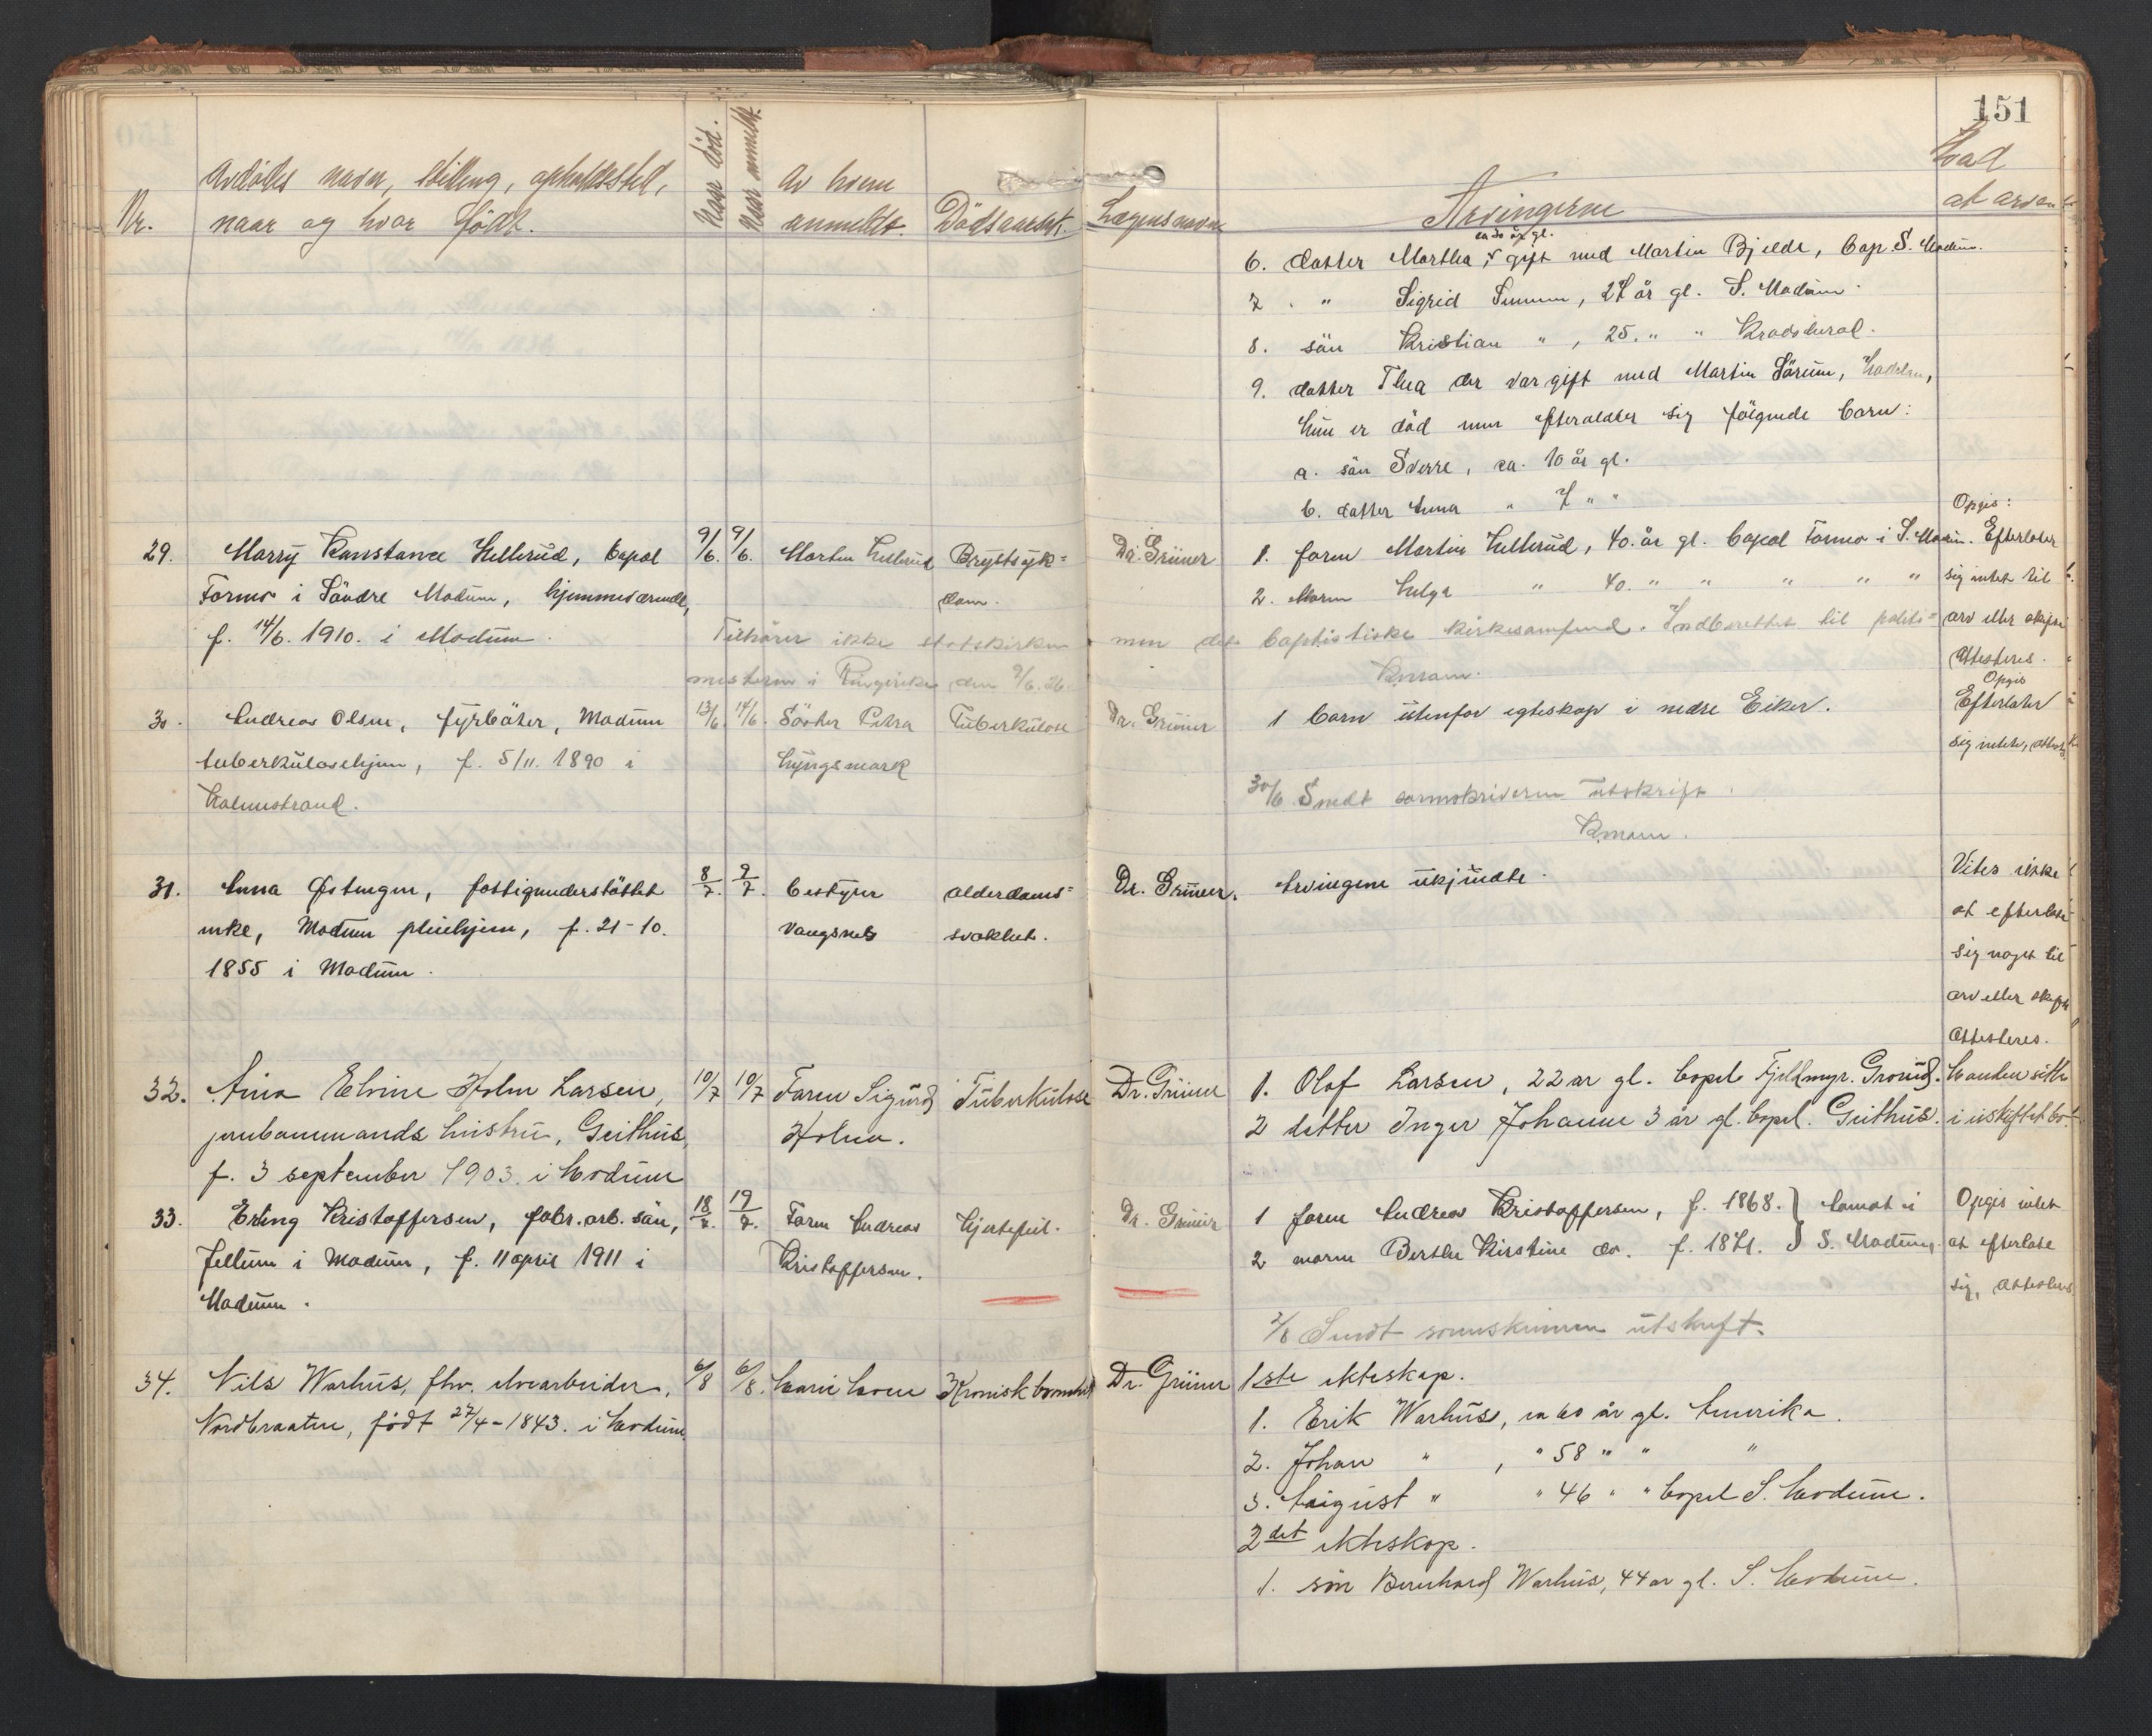 151
Nr.
Avdødes navn, stilling, opholdssted,
naar og hvor födt.
Naar död.
Naar anmeldt.
Av hvem
anmeldt.
Dödsaarsak.
Lægens navn
Arvingerne
Hvad
at arven
ca 30 år gl.
6. datter Martha, gift med Martin Bjelde, bop. S. Modum.
7. " Sigrid 27 år gl. S. Modum.
8. sön Kristian " , 25. " " Kradsherad.
9. datter Thea der var gift med Martin Sörum,
hun er död men efterlater sig fölgende barn:
a. sön Sverre, ca. 10 år gl.
b. datter Anna " 7 " "
29. Marry Konstance Hellerud, bopel
Formo i Söndre Modum, hjemmeværende,
f. 14/6. 1910. i Modum.
9/6. 9/6. Morten Hellerud Brystsyk=
dom.
Dr. Grüner
1. faren Martin Hellerud, 40. år gl. bopel Formo i S. Modum.
2. Moren Helga " 40. " " " " "
Opgis:
Efterlater
sig intet til
arv eller skifte
Attesteres.
Tilhörer ikke statskirken men det baptistiske kirkesamfund. Indberettet til politi=
mesteren i Ringerike den 9/6. 26.
30. Andreas Olsen, fyrböter, Modum
tuberkulosehjem, f. 5/11. 1890 i
Holmestrand.
13/6. 14/6. Söster Petra
Lyngsmark
Tuberkulose
Dr. Grüner
1 barn utenfor egteskap i nedre Eiker.
Opgis
Efterlater
sig intet,
30/6 Sendt sorenskriveren utskrift.
31. Anna Østengen, fattigunderstöttet
enke, Modum pleiehjem, f. 21-10.
1855 i Modum.
8/7. 9/7. bestyrer
Vangsnes
alderdoms=
svakhet.
Dr. Grüner.
Arvingene ukjendte.
Vites ikke
at efterlate
sig noget til
arv eller skifte
Attesteres.
32. Aina Elvine Holm Larsen,
jernbanemands hustru, Geithus,
f. 3 september 1903. i Modum
10/7 10/7 Faren Sigurd
Holm.
Tuberkulose
Dr. Grüner
1. Olaf Larsen, 22 år gl. bopel Fjeldmyr. Grorud.
2 datter Inger Johanne 3 år gl. bopel. Geithus.
Manden sitter
i uskiftet bo.
33. Erling Kristoffersen, fabr. arb. sön,
Jellum i Modum, f. 11 april 1911 i
Modum.
18/7. 19/7. Faren Andreas
Kristoffersen.
hjertefeil.
Dr. Grüner
1 faren Andreas Kristoffersen, f. 1868. }
2 moren Berthe Kirstine do. f. 1871. } S. Modum.
Opgis intet
at efterlate
sig, attesteres
2/8 Sendt sorenskriveren utskrift.
34. Nils Warhus, fhv. elvearbeider,
Nordbraaten, født 27/4-1843. i Modum.
6/8 6/8. Marie Moen Kronisk
Dr. Grüner
1ste ekteskap.
1. Erik Warhus, ca 60 år gl. Amerika.
2. Johan " , " 58 " " "
3. August " " 46 " " bopel S. Modum.
2det ekteskap.
1. sön Bernhard Warhus, 44 år gl. S. Modum.